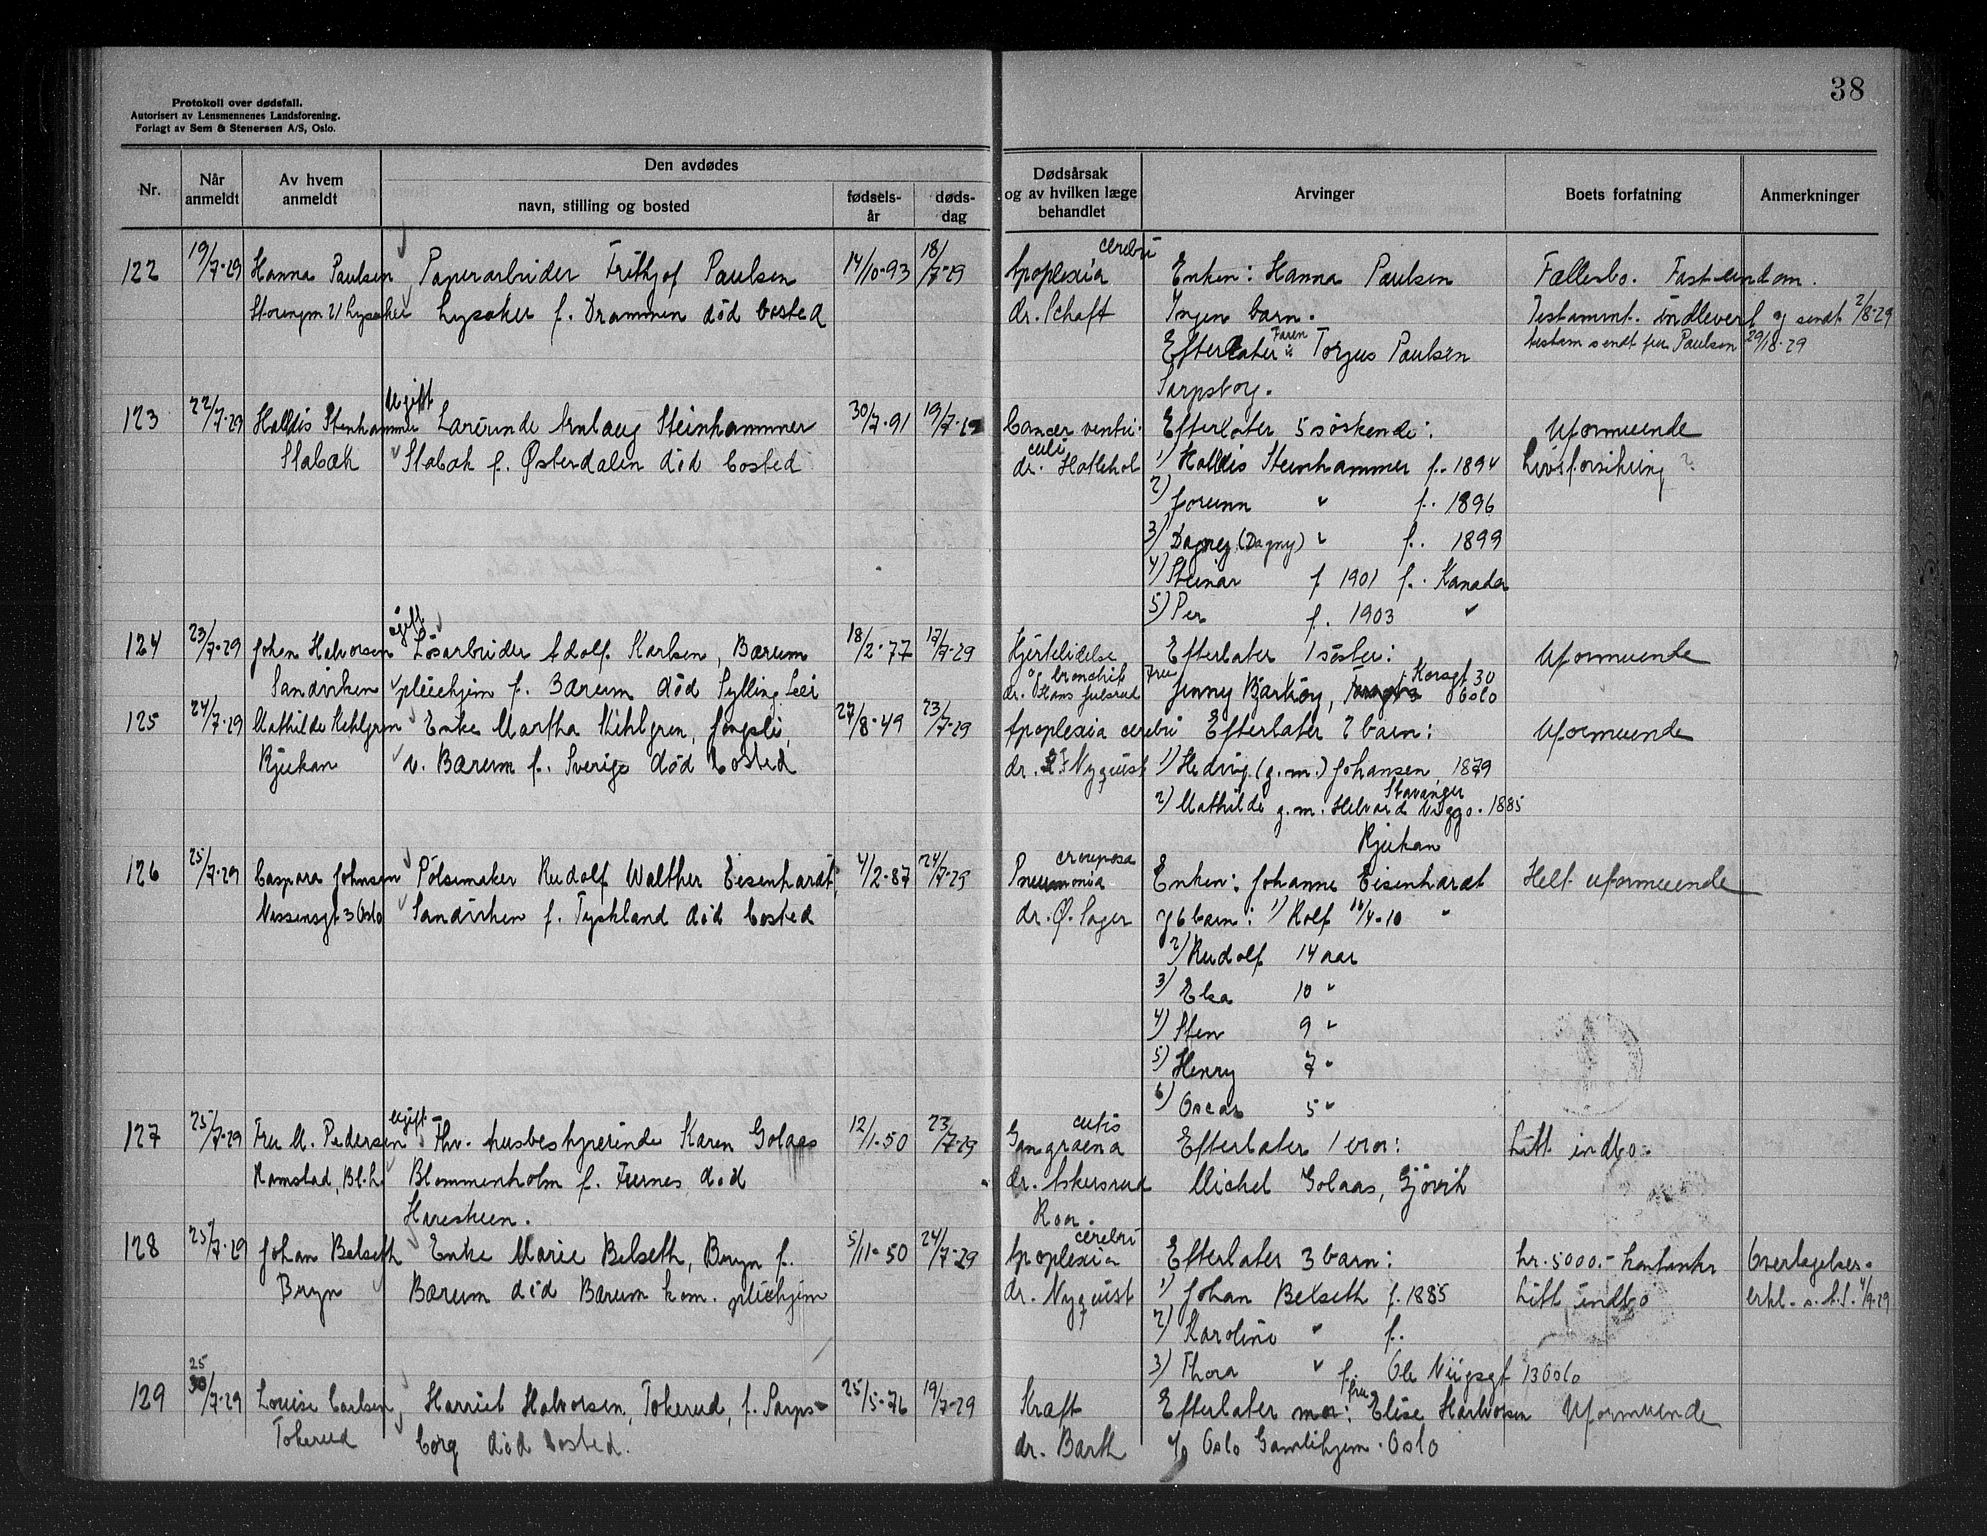 38
Protokoll over dødsfall.
Autorisert av Lensmennenes Landsforening.
Forlagt av Sem & Stenersen A/S, Oslo.
Nr. Når anmeldt Av hvem anmeldt Den avdødes navn, stilling og bosted fødsels-år døds-dag Dødsårsak og av hvilken læge behandlet Arvinger Boets forfatning Anmerkninger
cerebri
122 19/7-29 Hanna Paulsen Papirarbeider Frithjof Paulsen 14/10-93 18/7-29 Apoplexia Enken: Hanna Paulsen Fællesbo. Fast eiendom.
Lysaker Lysaker f. Drammen død bosted dr. Schaft Ingen barn. Testamnt. indlevert og sendt 2/8-29
Efterlater Faren: Torgus Paulsen testam sendt fru Paulsen 29/8-29
Sarpsborg.
Ugift
123 22/7-29 Halldis Stenhammer Lærerinde Arnlaug Steinhammer 30/7-91 19/7-29 Cancer ventri- Efterlater 5 søskende: Uformuende
Stabæk Stabæk f. Østerdalen død bosted culi dr. Hollehol 1) Halldis Steinhammer f. 1894 Livsforsikring ?
2) Jorunn " f. 1896
3) Dagney (Dagny) " f. 1899
4) Steinar f 1901 f. Kanada
5) Per f. 1903 "
ugift
124 23/7-29 Johan Halvorsen Løsarbeider Adolf Karlsen, Bærum 18/2-77 17/7-29 Hjertelidelse Efterlater 1 søster: Uformuende
Sandviken pleiehjem f. Bærum død Sylling Lier og bronchit dr. Hans Julsrud Fru Jenny Bjarkøy, Korsgt 30 Oslo
125 24/7-29 Mathilde Kihlgren Enke Martha Kihlgren, Jongslei, 27/8-49 23/7-29 Apoplexia cerebri Efterlater 2 barn: Uformuende
Rjukan v. Bærum f. Sverige død bosted dr. Nyquist 1) Hedvig (g.m.) Johansen 1879
Stavanger
2) Mathilde g.m. Helvard Viggo. 1885
Rjukan
crouposa
126 25/7-29 Caspara Johnsen Pølsemaker Rudolf Walther Eisenhardt, 4/2-87 24/7-29 Pneumonia Enken: Johanne Eisenhardt Helt uformuende
Nissensgt 3 Oslo Sandviken f. Tyskland død bosted dr. Ø. Sager og 6 barn: 1) Rolf 16/4-10 "
2) Rudolf 14 aar
3) Elsa 10 "
4) Sten 9 "
5) Henry 7 "
6) Oscar 5 "
ugift cutis
127 25/7-29 Fru M. Pedersen Fhv. husbestyrerinde Karen Golaas 12/1-50 23/7-29 Gangraena Efterlater 1 bror: Litt indbo.
Ramstad, Bl.h. Blommenholm f. Furnes død dr. Askersrud Michel Golaas, Gjøvik
Harestuen. Roa.
cerebri
128 25/7-29 Johan Belseth Enke Marie Belseth, Bryn f. 5/11-50 24/7-29 Apoplexia Efterlater 3 barn: kr. 5000.- kontanter Overtagelses-
Bryn Bærum død Bærum kom. pleiehjem dr. Nyquist 1) Johan Belseth f. 1885 Litt indbo erkl. s. A.S. 4/9-29
2) Karoline " f.
3) Thora " f. Ole Viigsgt 13 Oslo
25
129 30/7-29 Louise Carlsen Harriet Halvorsen, Tokerud, f. Sarps- 25/5-76 19/7-29 Kraft Efterlater mor: fru Elise Halvorsen Uformuende
Tokerud borg død bosted. dr. Barth c/o Oslo Gamlehjem. Oslo